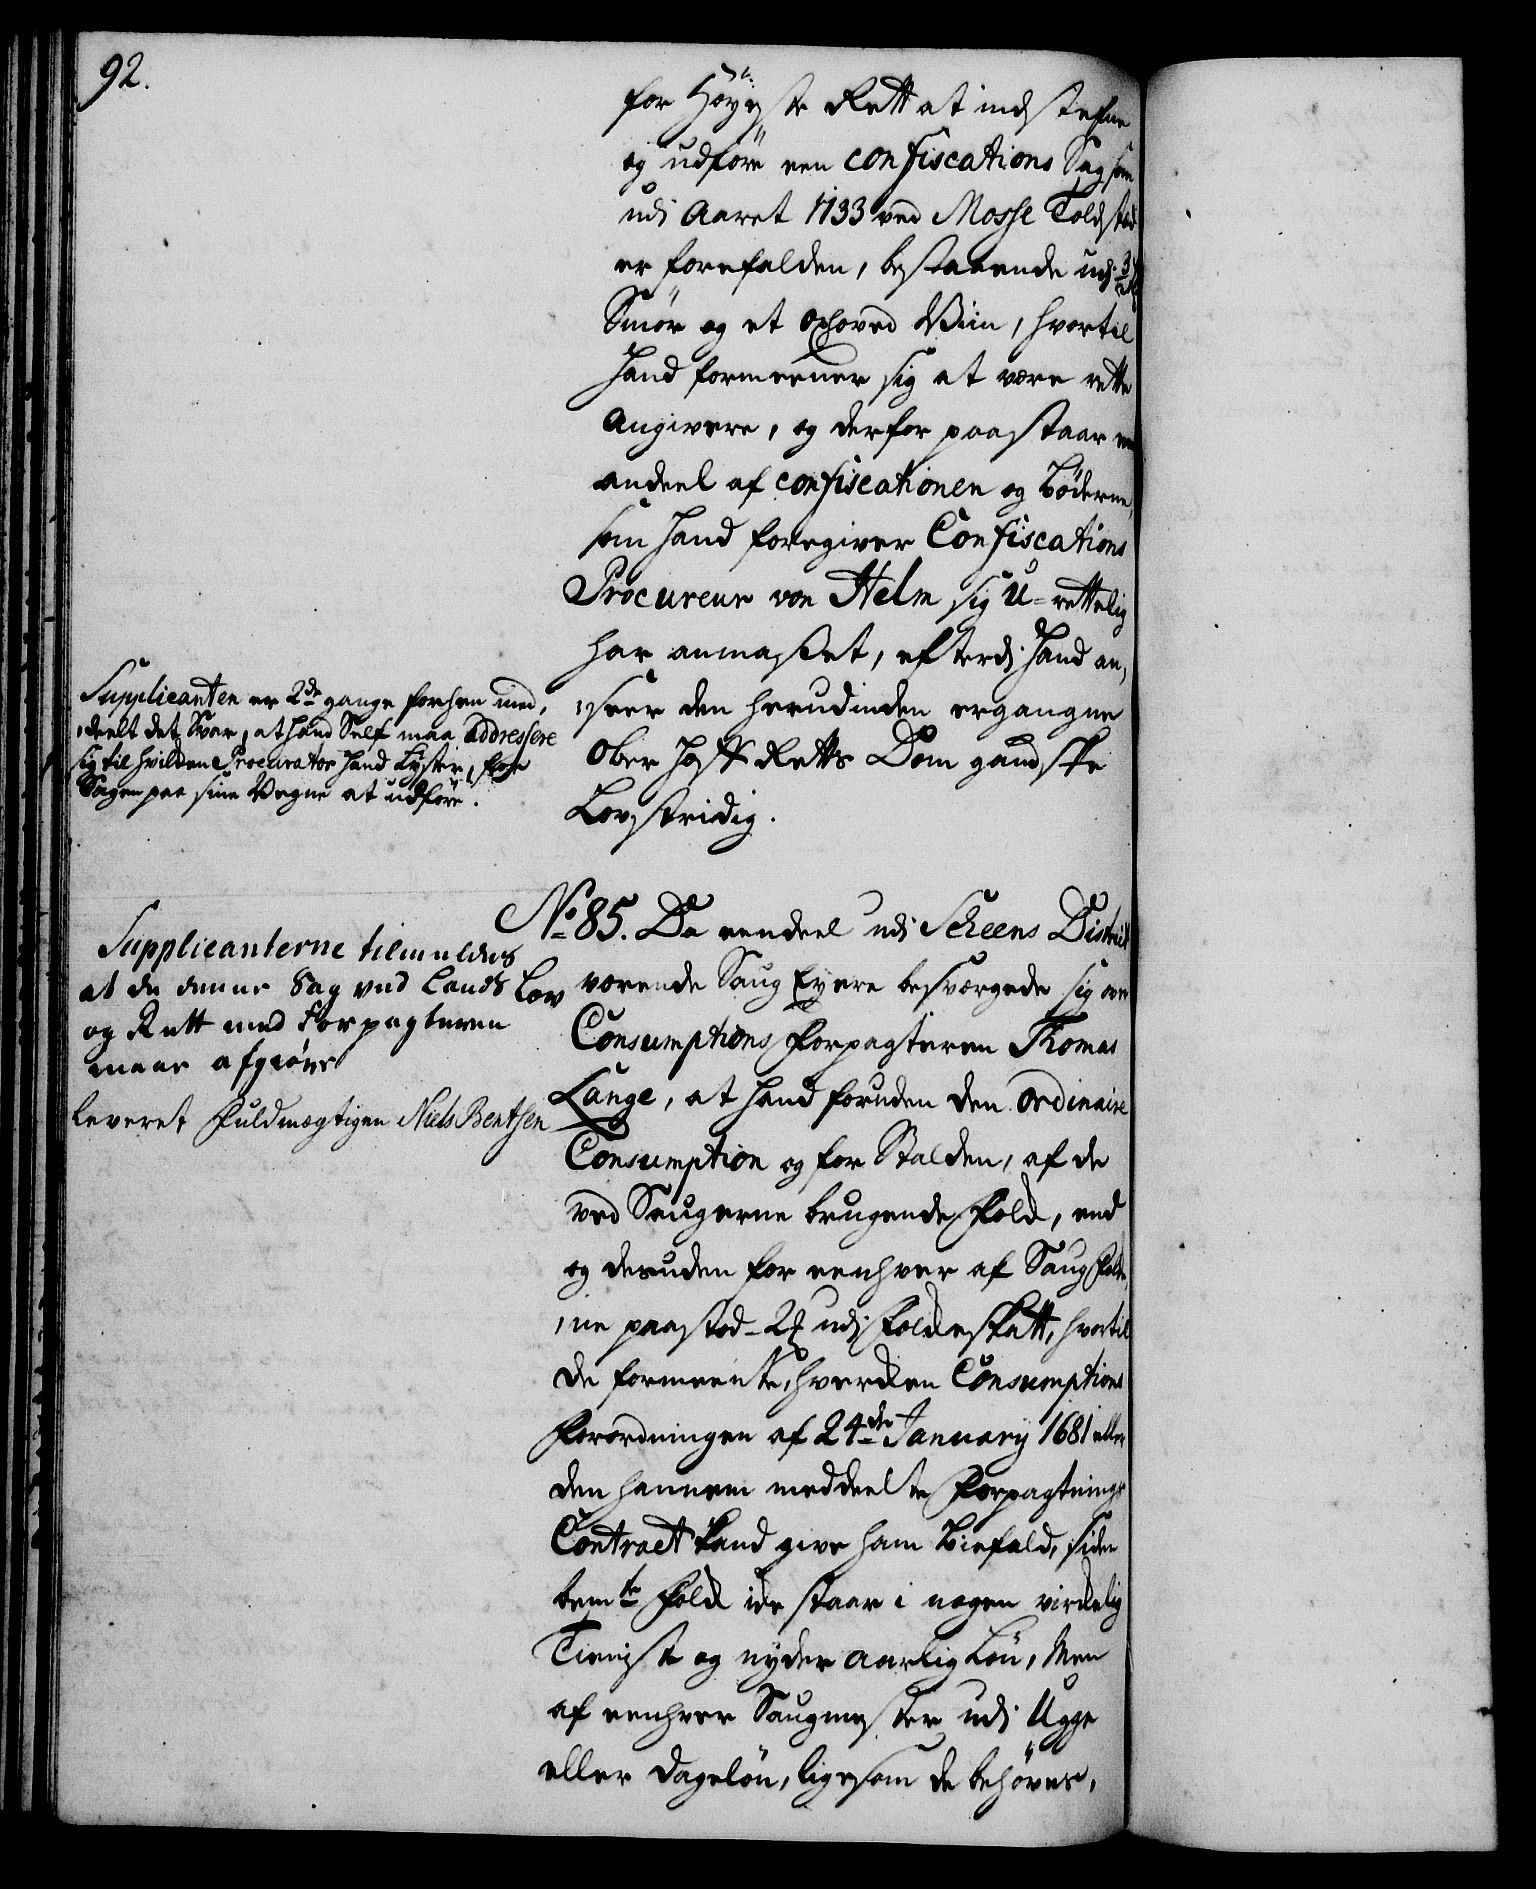 92.
for Høyeste Rett at indstefne
og udføre een confiscations Sag som
udi Aaret 1733 ved Mosse Toldsted
er forefalden, bestaaende udi
Smør og et Oxhoved Viin, hvortil
Hand formeener sig at være rette
Angivere, og derfor paastaar een
andeel af confiscationen og Bøderne,
som Hand foregiver Confiscations
Procureur von Helm sig U-rettelig
har anmasset, efterdi Hand an,
,seer den herudinden ergangne
Ober Hoff Retts Dom gandske
Lovstridig.
Supplicanten er 2de gange forhen med,
,deelt det Svar, at Hand Self maa addressere
sig til hvilken Procurator Hand Lyster, for
Sagen paa sine Vegne at udføre.
No. 85. Da eendeel udi Scheens District
værende Saug Eyere besværgede sig over
Consumptions Forpagteren Thomas
Lange, at Hand foruden den ordinaire
Consumption og for Stalden, af de
ved Saugerne brugende Folk, end
og desuden for eenhver af Saug Folke,
,ne paastod - 2 udi Folkeskatt, hvortil
de formeente, hverken Consumptions
Forordningen af 24de January 1681 eller
den hannem meddeelte Forpagtnings
Contract kand give ham Biefald, siden
bemte Folk icke staar i nogen virkelig
Tieniste og nyder aarlig Løn, Men
af eenhver Saugmester udi Uge
eller dageløn, ligesom de behøves,
Supplicanterne tilmeldes
at de denne Sag ved Lands Lov
og Rett med Forpagteren
maae afgiøre
leveret Fuldmægtigen Niels Bentsen